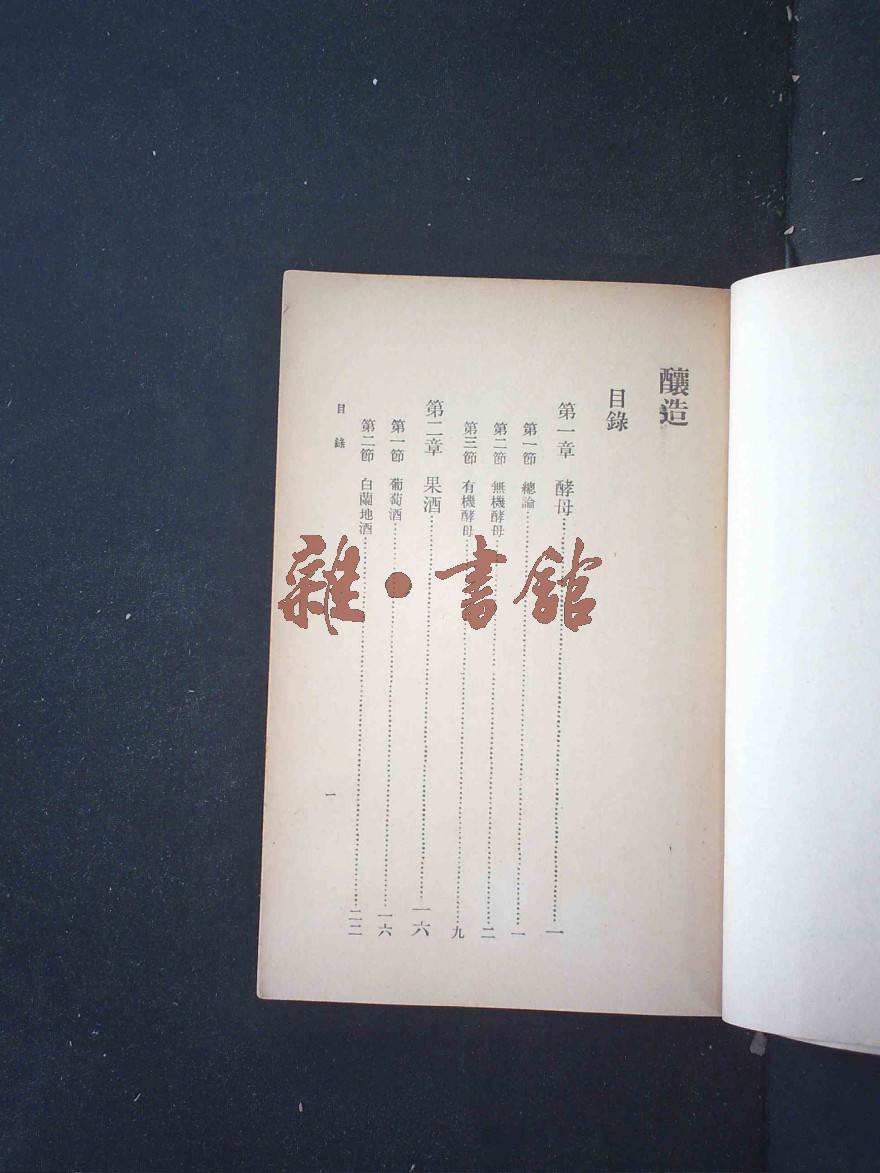 釀造
目錄
第一章 酵母……一
第一節 總論……一
第二節 無機酵母……二
第三節 有機酵母……九
第二章 果酒……一六
第一節 葡萄酒……一六
第二節 白蘭地酒……二二
目錄
一
雜·書館